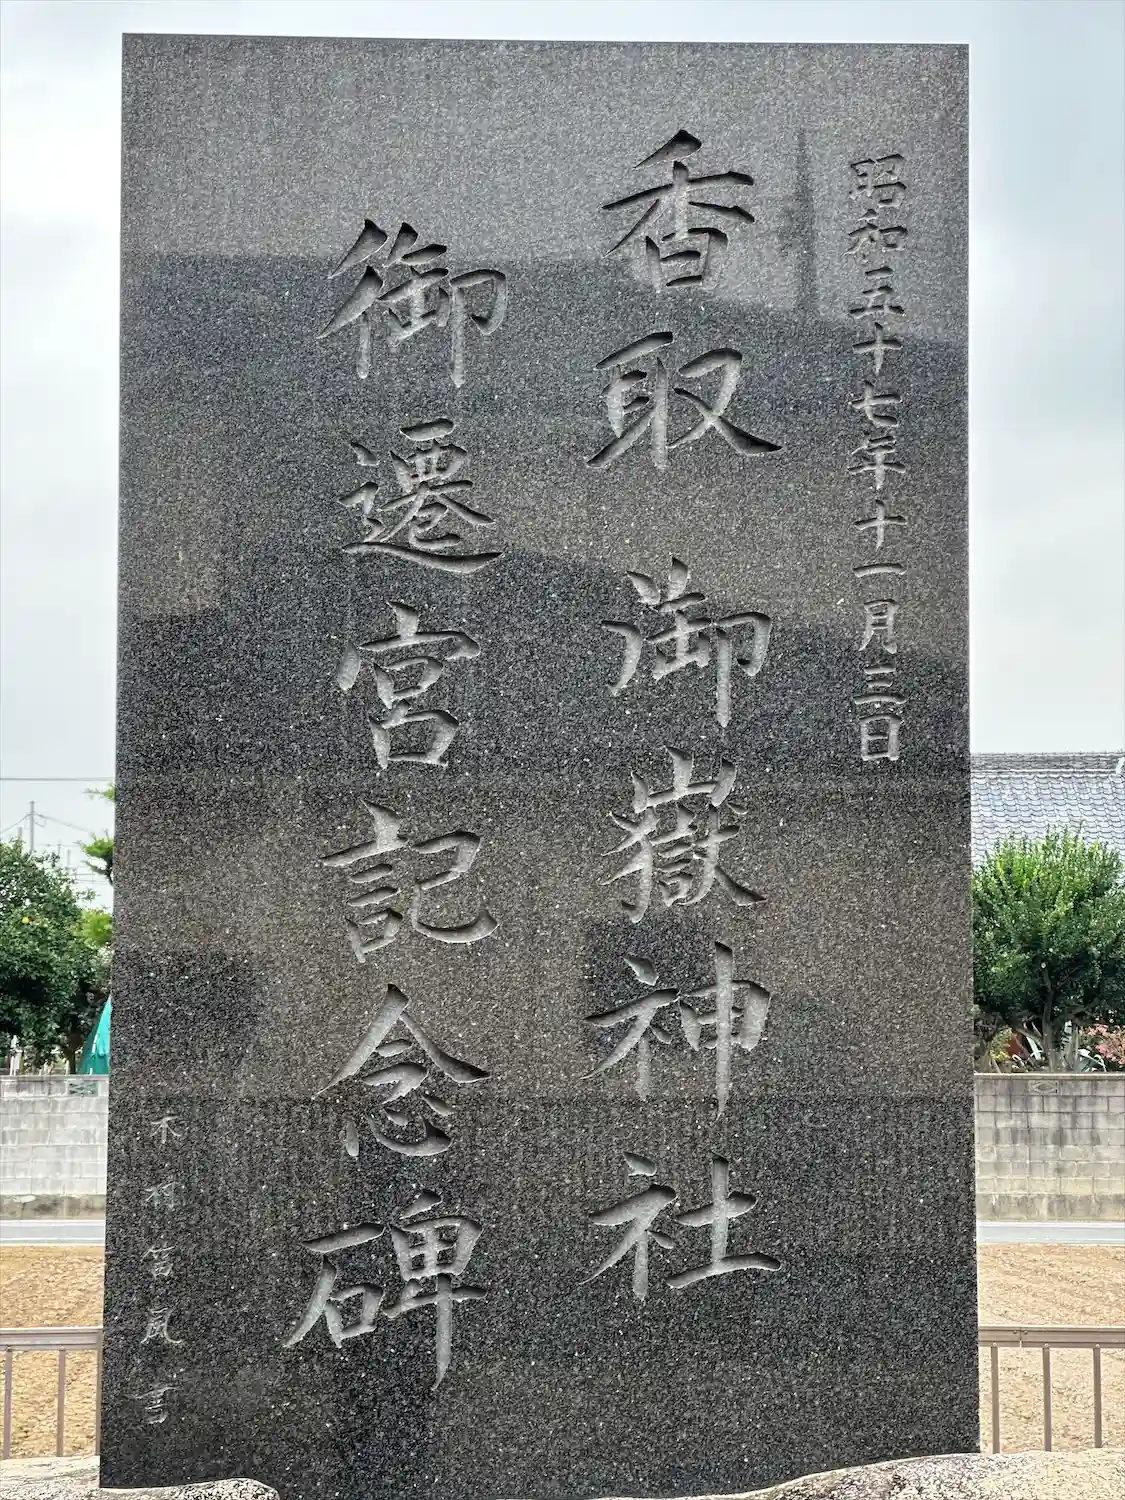 昭和五十七年十一月三日
香取御嶽神社
御遷宮記念碑
木村笛風書